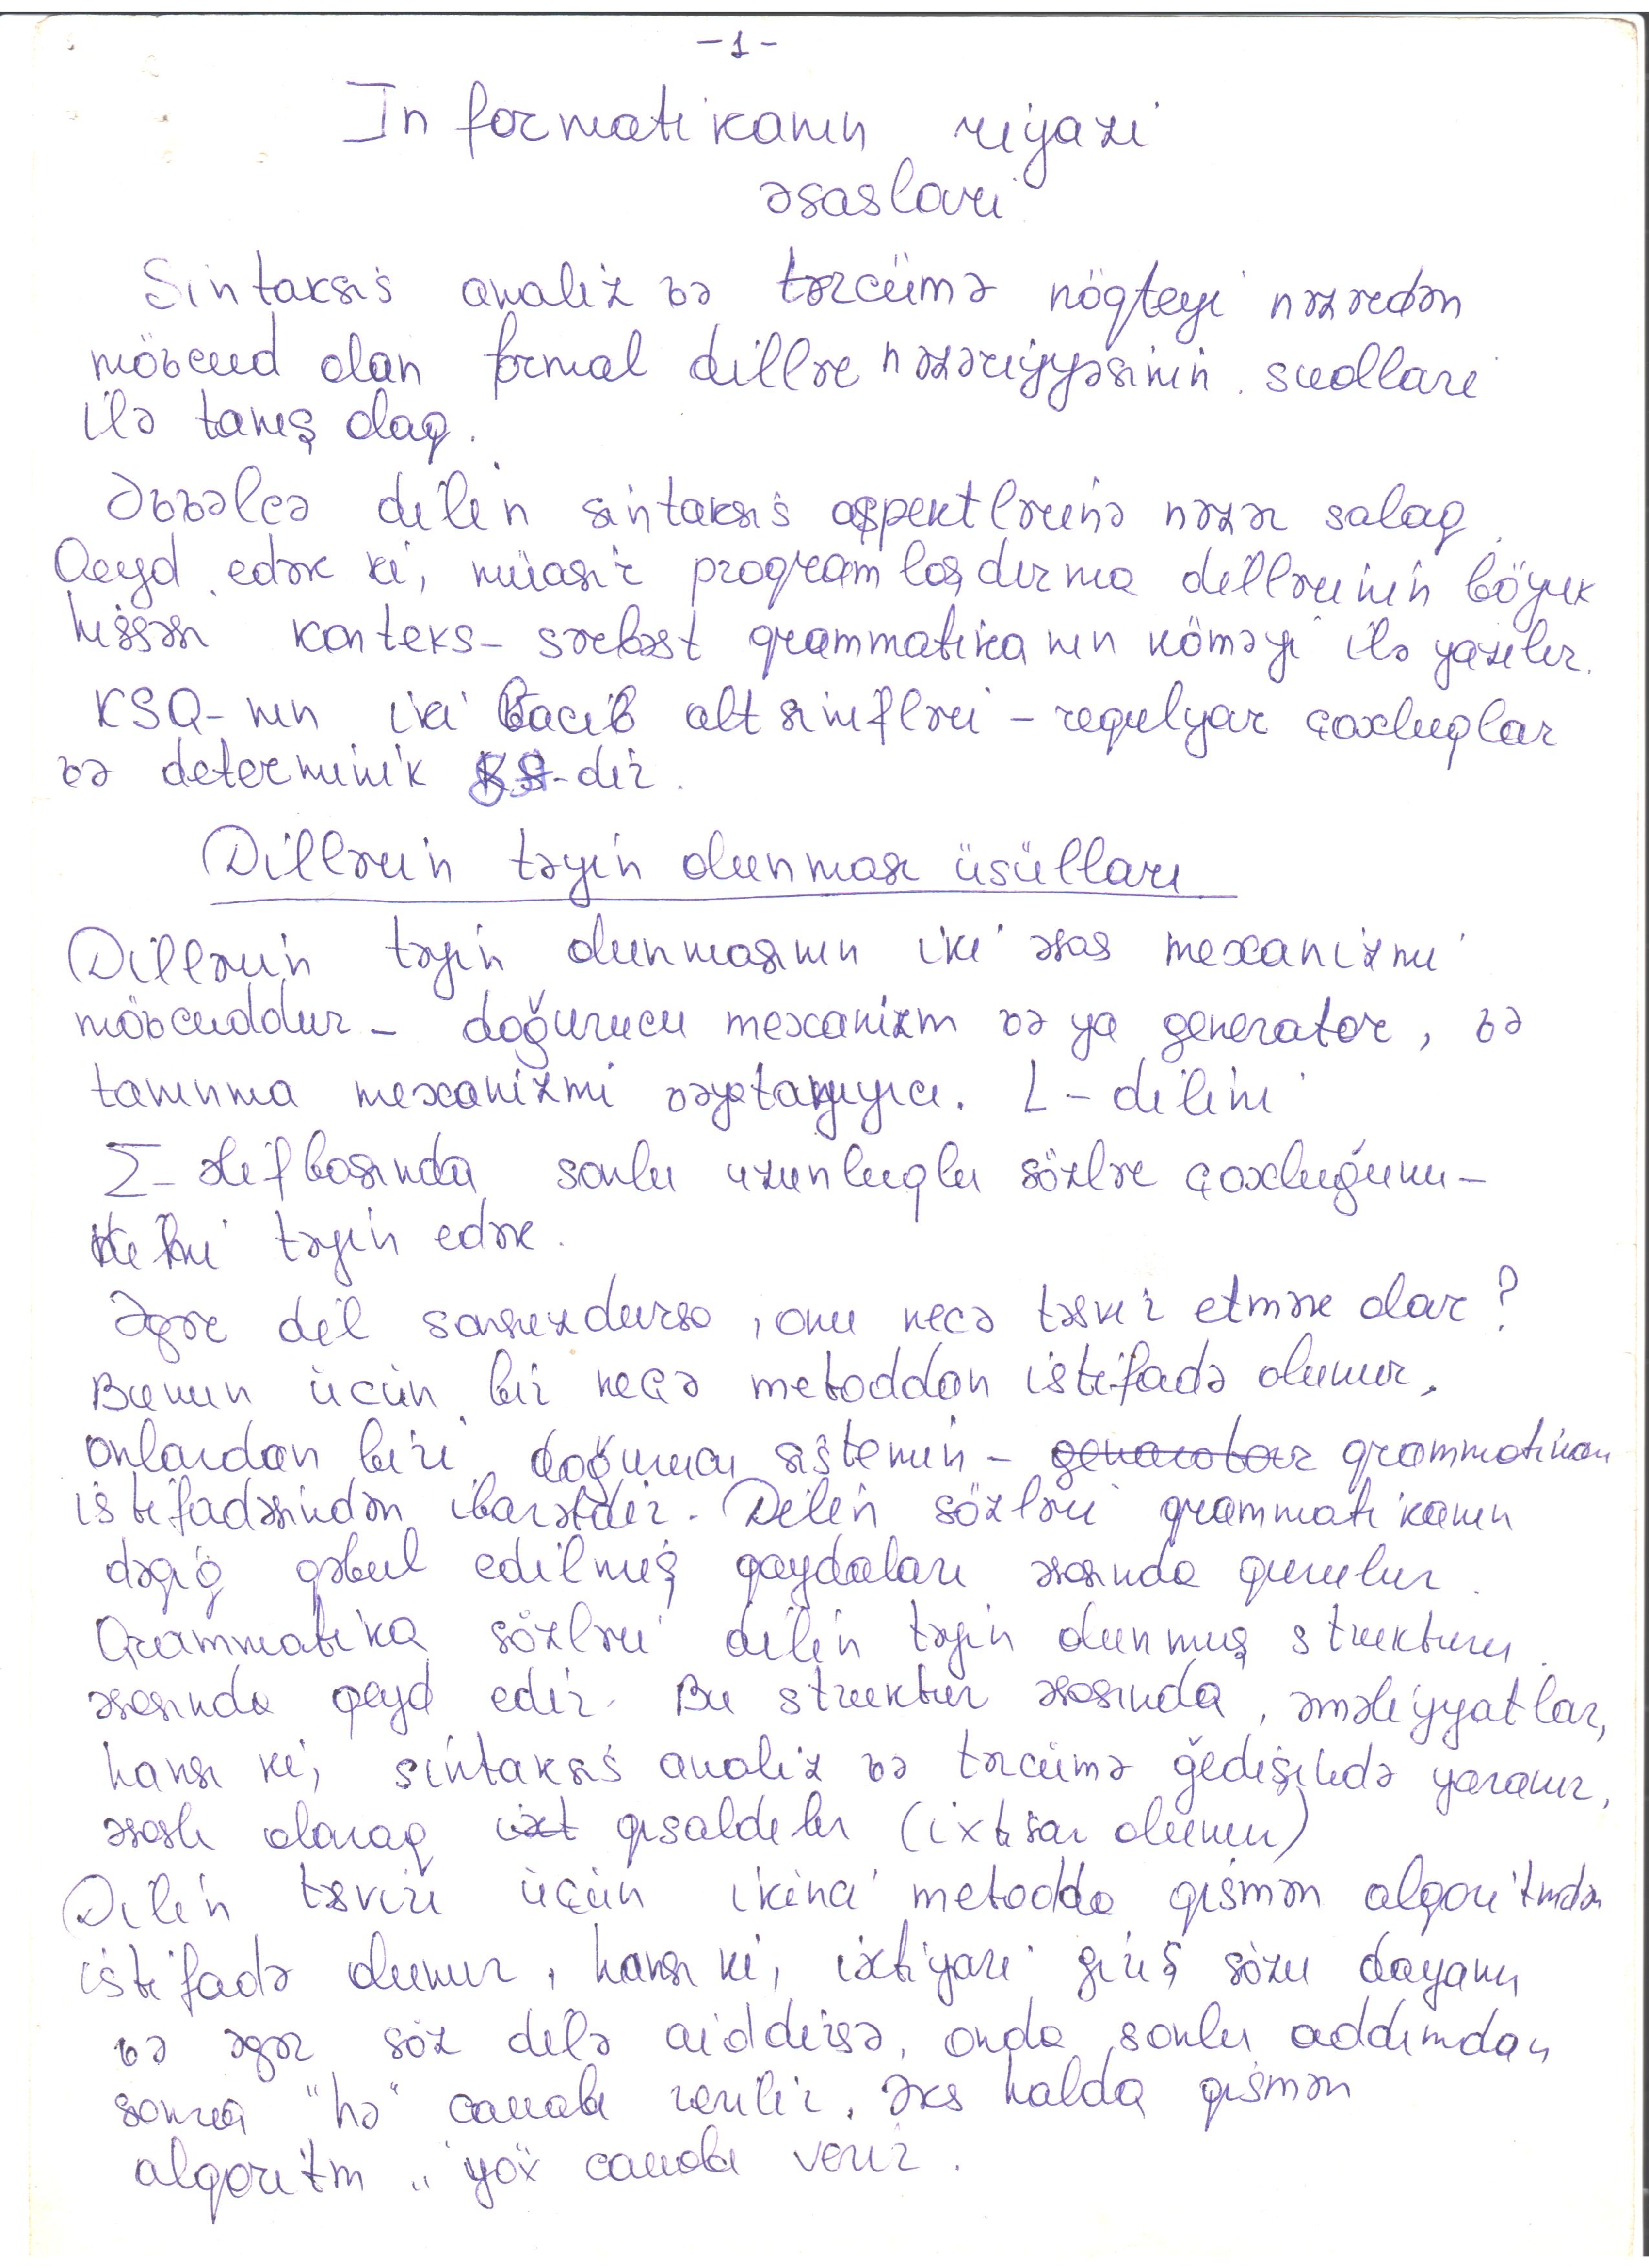 -1-
Informatikanın riyazi
əsasları
Sintaksis analiz və tərcümə nöqteyi nəzərdən
mövcud olan formal dillər nəzəriyyəsinin sualları
ilə tanış olaq.
Əvvəlcə dilin sintaksis aspektlərinə nəzər salaq.
Qeyd edək ki, müasir proqramlaşdırma dillərinin böyük
hissəsi konteks-sərbəst qrammatikanın köməyi ilə yazılır.
KSQ-nın iki vacib altsinifləri - requlyar çoxluqlar
və determinik -dir.
Dillərin təyin olunması üsülları
Dillərin təyin olunmasının iki əsas mexanizmi
mövcuddur - doğurucu mexanizm və ya generator, və
tanınma mexanizmi vəya tanıyıcı. L - dilini
Σ - əlifbasında sonlu uzunluqlu sözlər çoxluğunu-
təyin edək.
Əgər dil sonsuzdursa, onu necə təsvir etmək olar?
Bunun üçün bir neçə metoddan istifadə olunur.
Onlardan biri doğurucu sistemin - qrammatikanın
istifadəsindən ibarətdir. Dilin sözləri qrammatikanın
dəqiq qəbul edilmiş qaydaları əsasında qurulur.
Qrammatika sözləri dilin təyin olunmuş strukturu
əsasında qeyd edir. Bu struktur əsasında, əməliyyatlar,
hansı ki, sintaksis analiz və tərcümə gedişində yaranır,
əsaslı olaraq qısaldılır (ixtisar olunur)
Dilin təsviri üçün ikinci metodda qismən alqoritmdən
istifadə olunur, hansı ki, ixtiyari giriş sözu dayanır
və əgər söz dilə aiddirsə, onda sonlu addımdan
sonra "hə" cavabı verilir. Əks halda qismən
alqoritm "yox" cavabı verir.